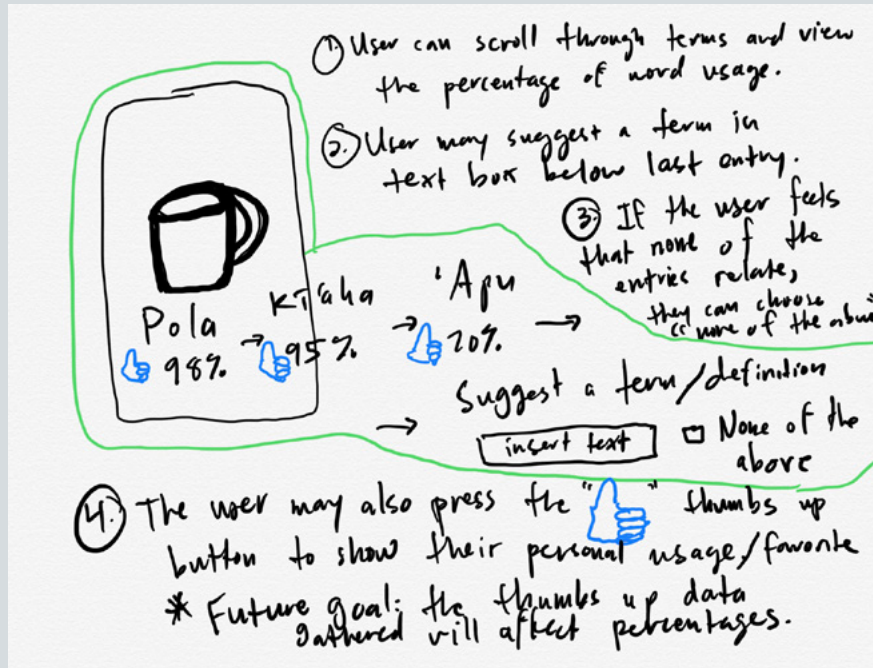 1. User can scroll through terms and view
the percentage of word usage.
2. User may suggest a term in
text box below last entry.
3. If the user feels
that none of the
entries relate,
they can choose
"none of the above"
Pola
98%
Kīʻaha
95%
ʻApu
20%
Suggest a term/definition
insert text
None of the
above
4. The user may also press the " " thumbs up
button to show their personal usage/favorite
* Future goal: the thumbs up data
gathered will affect percentages.